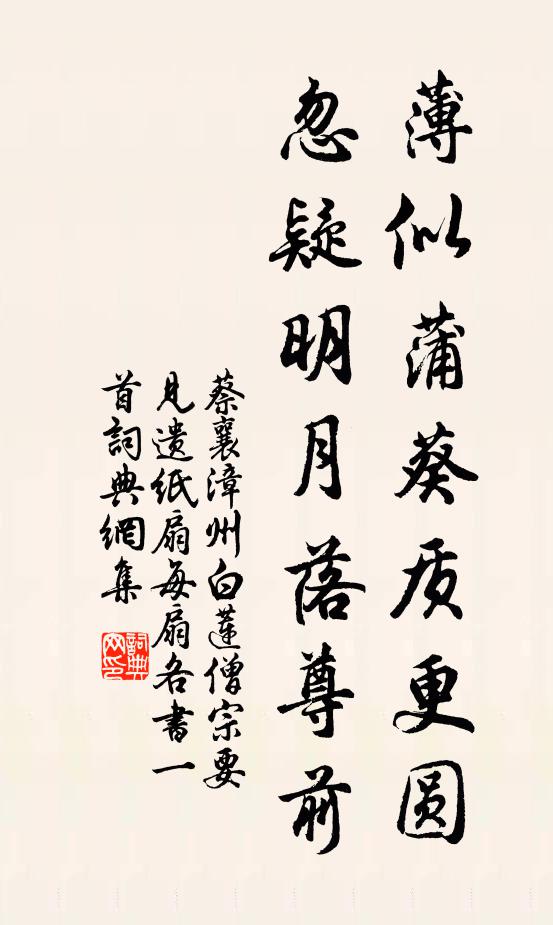 薄似蒲葵质更圆
忽疑明月落尊前
蔡襄漳州白莲僧宗要
見遗紙扇每扇各書一
首詞典網集
詞典网印